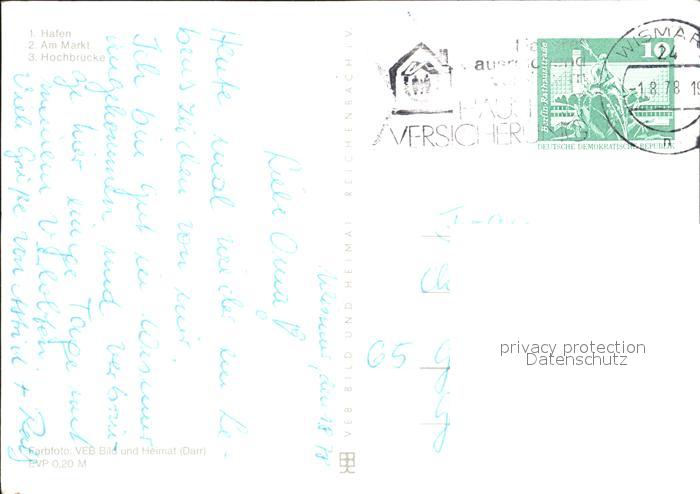 1. Hafen
2. Am Markt
3. Hochbrücke
Wismar, den 1.8.78
Liebe Oma!
Heute mal wieder ein Le-
benszeichen von mir.
Ich bin gut in Wismar
angekommen und verbrin-
ge hier einige Tage mit
meinem Verlobten.
Viele Grüße von Astrid +
Farbfoto: VEB Bild und Heimat (Darr)
EVP 0,20 M
VEB BILD UND HEIMAT REICHENBACH i. V.
HAUS
VERSICHERUNG
WISMAR
24
-1.8.78 19
n
10
Berlin, Rathausstraße
DEUTSCHE DEMOKRATISCHE REPUBLIK
65 G
privacy protection
Datenschutz